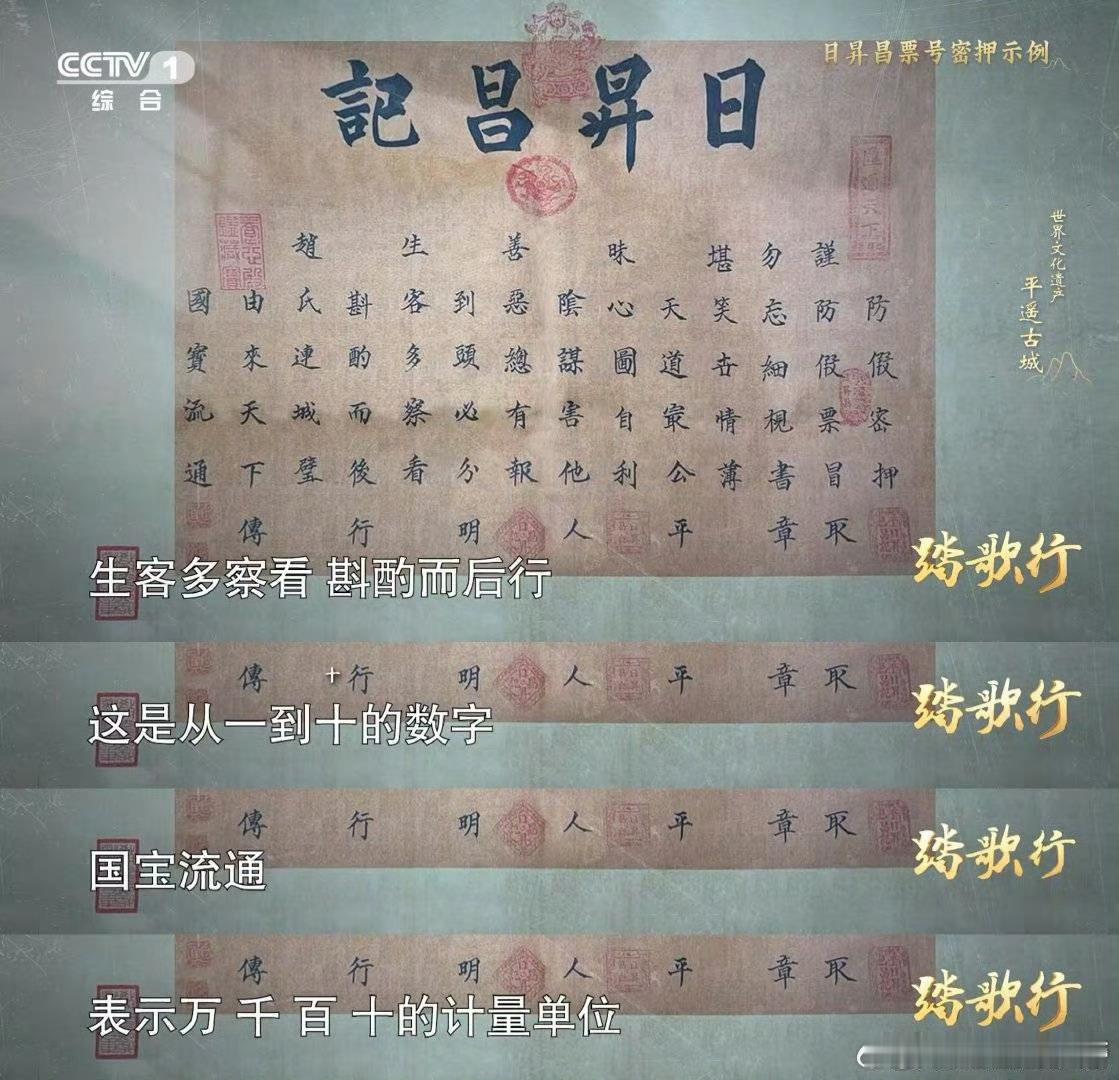 CCTV 1
综合
日昇昌票号密押示例
日昇昌記
匯通天下
世界文化遗产
平遥古城
防假密押
謹防假票冒取
勿忘細視書章
堪笑世情薄
天道最公平
昧心圖自利
陰謀害他人
善惡總有報
到頭必分明
生客多察看
斟酌而後行
趙氏連城璧
由來天下傳
國寶流通
生客多察看 斟酌而后行
踏歌行
傳 行 明 人 平 章 取
这是从一到十的数字
踏歌行
傳 行 明 人 平 章 取
国宝流通
踏歌行
傳 行 明 人 平 章 取
表示万 千 百 十的计量单位
踏歌行